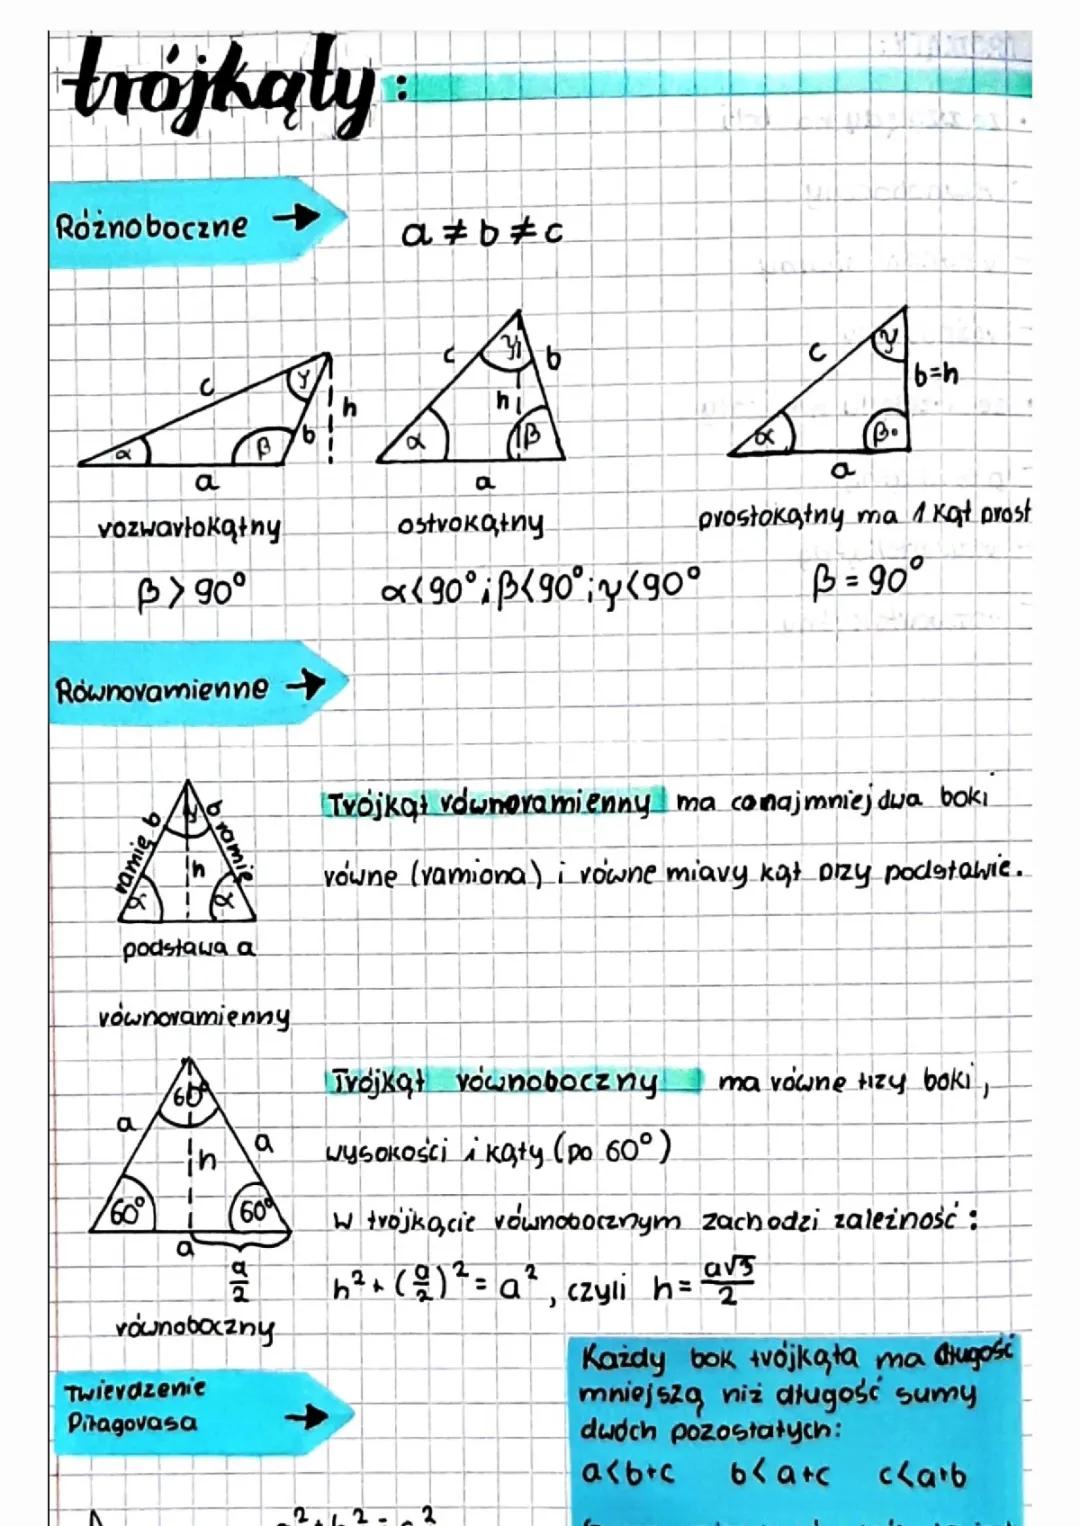 trójkąty:
Różnoboczne →
a ≠ b ≠ c
c γ h α β b a
c γ b h α β a
c γ b=h α β a
rozwartokątny
ostrokątny
prostokątny ma 1 kąt prost
β > 90°
α<90° ; β<90° ; γ<90°
β = 90°
Równoramienne →
ramię b
γ
b ramię
h
α α
podstawa a
równoramienny
Trójkąt równoramienny ma conajmniej dwa boki
równe (ramiona) i równe miary kąt przy podstawie.
60°
a h a
60° 60°
a
a/2
równoboczny
Trójkąt równoboczny ma równe trzy boki,
wysokości i kąty (po 60°)
W trójkącie równobocznym zachodzi zależność:
h² + (a/2)² = a², czyli h = a√3/2
Twierdzenie
Pitagorasa →
Każdy bok trójkąta ma długość
mniejszą niż długość sumy
dwóch pozostałych:
a<b+c b<a+c c<a+b